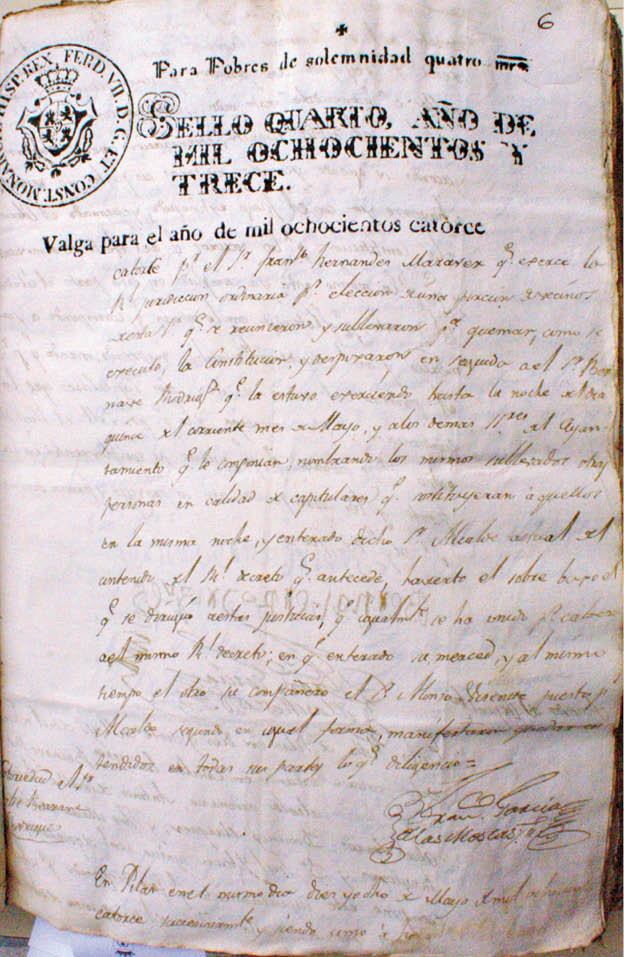 6
Para Pobres de solemnidad quatro mrs.
HISP. REX. FERD. VII. D. G. ET CONST. MONAR
SELLO QUARTO, AÑO DE
MIL OCHOCIENTOS Y
TRECE.
Valga para el año de mil ochocientos catorce
catorce pr. el Sr. Franco. Hernandez qe. exerce la
Rl. jurisdiccion ordinaria pr. eleccion de una porcion de vecinos
qe. se reunieron y sullevaron pr. quemar, como se
executó, la Constitucion, y despojaron en seguida a el Sr.
qe. la estuvo exerciendo hasta la noche del dia
quince del corriente mes de Mayo, y a los demas Sres. del Ayun-
tamiento qe. le componian, nombrando los mismos sullevados otras
personas en calidad de capitulares qe. sostituyeran á aquellos
en la misma noche, y enterado dicho Sr. Alcalde actual del
contenido del Rl. decreto qe. antecede, el sobre bajo el
qe. se dirijió a estas justicias, qe. igualmte. se ha unido
a el mismo Rl. decreto; en qe. enterado su merced, y al mismo
tiempo el otro su compañero el Sr. Alonso puesto pr.
Alcalde segundo en igual forma, manifestaron quedar en
tendidos en todas sus partes lo qe. diligencio=
Franco. Garcia
de las Moscas
En Pilas en el mismo dia diez y ocho de Mayo de mil ochocientos
catorce y siendo como á